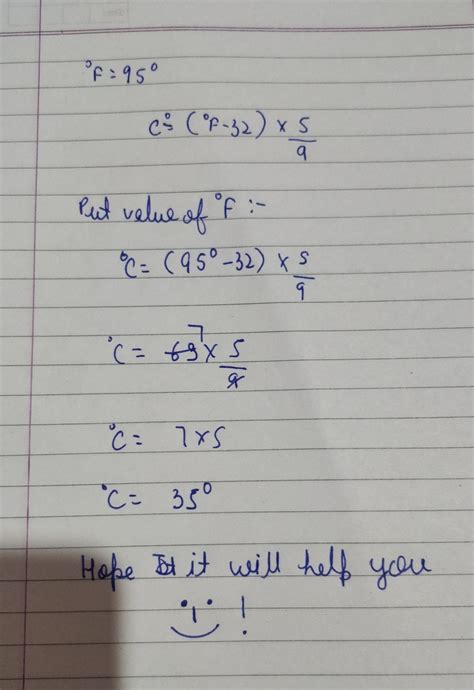 °F = 95°
C° = (°F - 32) × 5/9
Put value of °F :-
°C = (95° - 32) × 5/9
°C = 63 7 × 5/9
°C = 7 × 5
°C = 35°
Hope it will help you
!